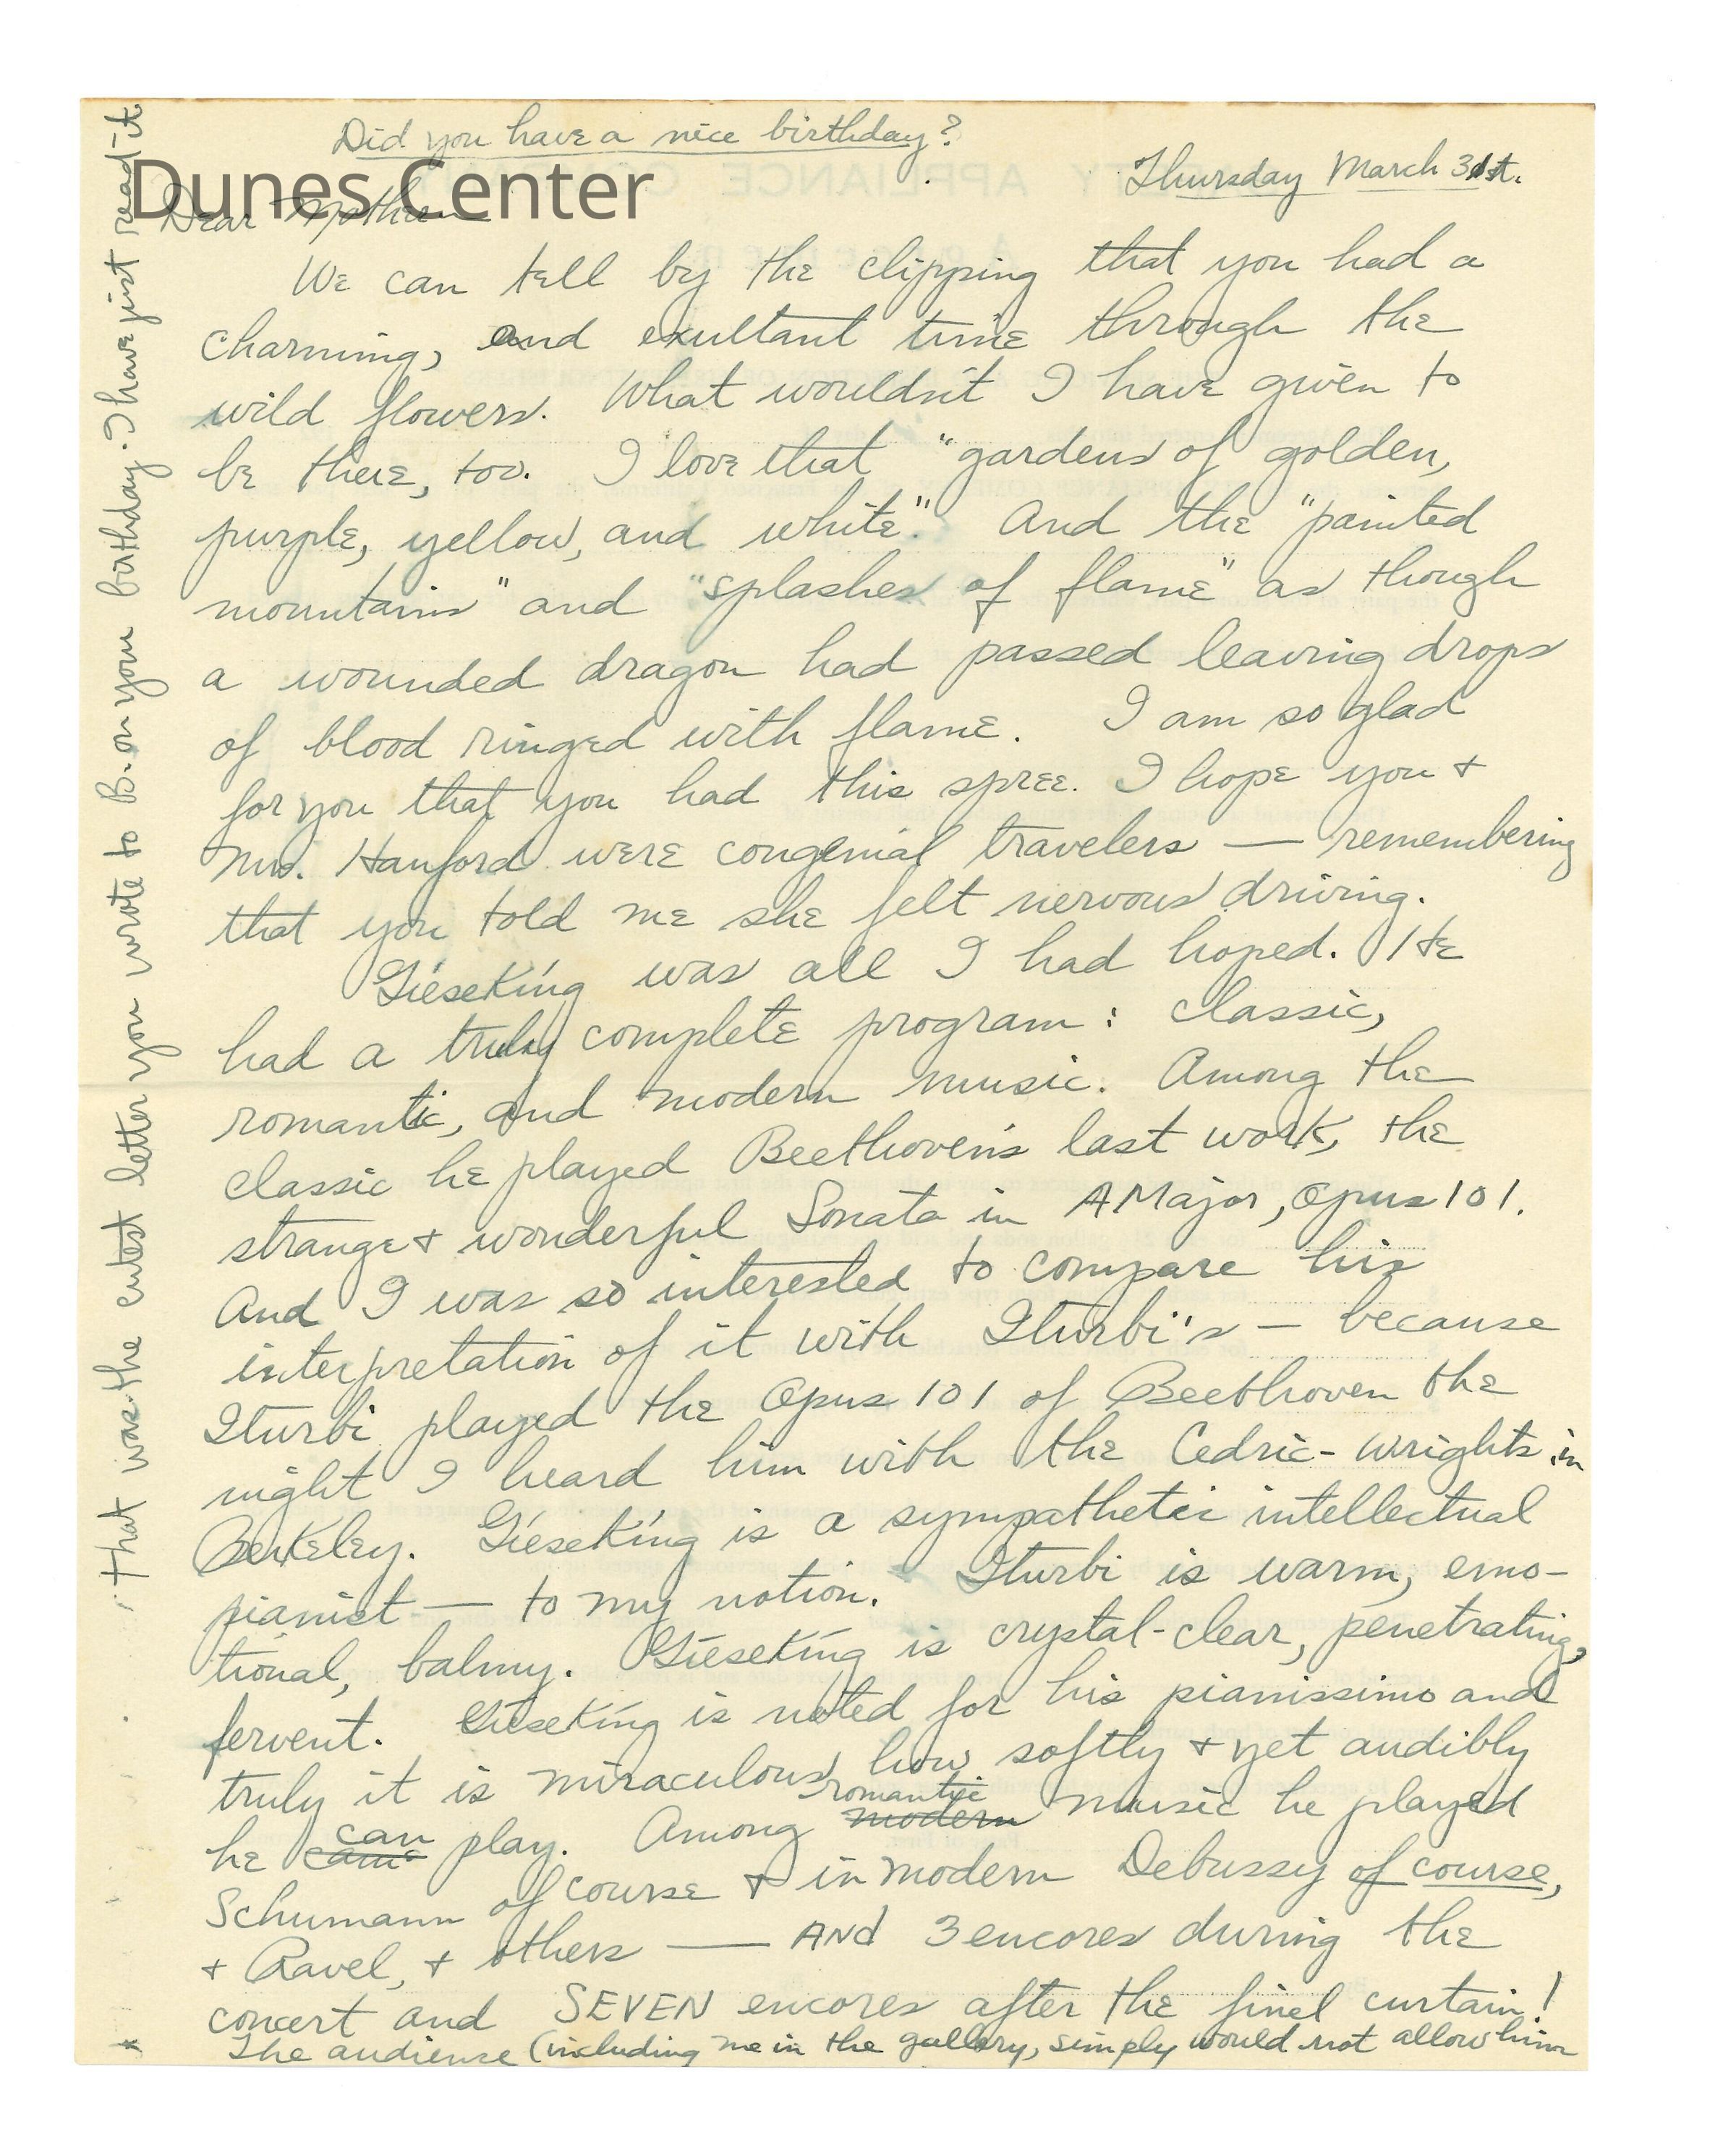 Did you have a nice birthday?
Thursday March 31st.
Dunes Center
Dear Mother
We can tell by the clipping that you had a
charming, and exultant time through the
wild flowers. What wouldn't I have given to
be there, too. I love that "gardens of golden,
purple, yellow, and white". And the "painted
mountains" and "splashes of flame" as though
a wounded dragon had passed leaving drops
of blood ringed with flame. I am so glad
for you that you had this spree. I hope you +
Mrs. Hanford were congenial travelers — remembering
that you told me she felt nervous driving.
Gieseking was all I had hoped. He
had a truly complete program: classic,
romantic, and modern music. Among the
classic he played Beethoven's last work, the
strange + wonderful Sonata in A Major, Opus 101.
And I was so interested to compare his
interpretation of it with Iturbi's — because
Iturbi played the Opus 101 of Beethoven the
night I heard him with the Cedric-Wrights in
Berkeley. Gieseking is a sympathetic intellectual
pianist — to my notion. Iturbi is warm, emo-
tional, balmy. Gieseking is crystal-clear, penetrating,
fervent. Gieseking is noted for his pianissimo and
truly it is miraculous how softly + yet audibly
he came can play. Among modern romantic music he played
Schumann of course + in modern Debussy of course,
+ Ravel, + others — AND 3 encores during the
concert and SEVEN encores after the finel curtain!
The audience (including me in the gallery, simply would not allow him
* that was the cutest letter you wrote to B. on your birthday. I have just read it.